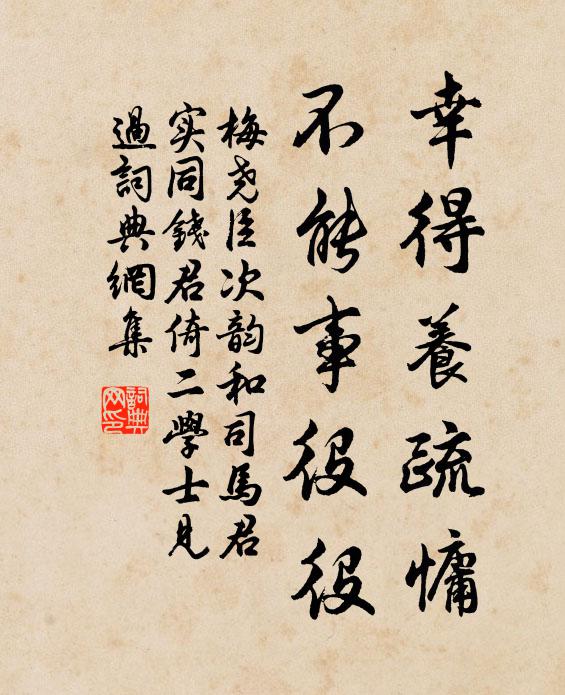 幸得養疏慵
不能事役役
梅尧臣次韵和司馬君
实同錢君倚二學士見
過詞典網集
詞典
网印